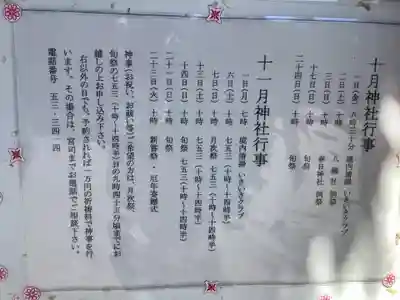 十月神社行事
一日(金) 八時三十分 境内清掃 いきいきクラブ
二日(土) 十時 八幡社 例祭
三日(日) 十時 春日神社 例祭
十七日(日) 十時 旬祭
二十四日(日) 十時 旬祭
十一月神社行事
一日(月) 七時 境内清掃 いきいきクラブ
六日(土) 十時 七五三(十時~十四時半)
七日(日) 十時 月次祭 七五三(十時~十四時半)
十三日(土) 十時 七五三(十時~十四時半)
十四日(日) 十時 旬祭 七五三(十時~十四時半)
二十一日(日) 十時 旬祭
二十三日(火) 十時 新嘗祭・厄年奉賛式
神事(お祝い、お祓い等)ご希望の方は、月次祭、
旬祭の七五三(十時~十四時半)日の九時四十五分頃までにお
越しの上お申し込み下さい。
右以外の日でも、予約されれば一万円の祈祷料で神事を行
います。その場合は、宮司までお電話でご相談下さい。
電話番号 五三‐三四一四